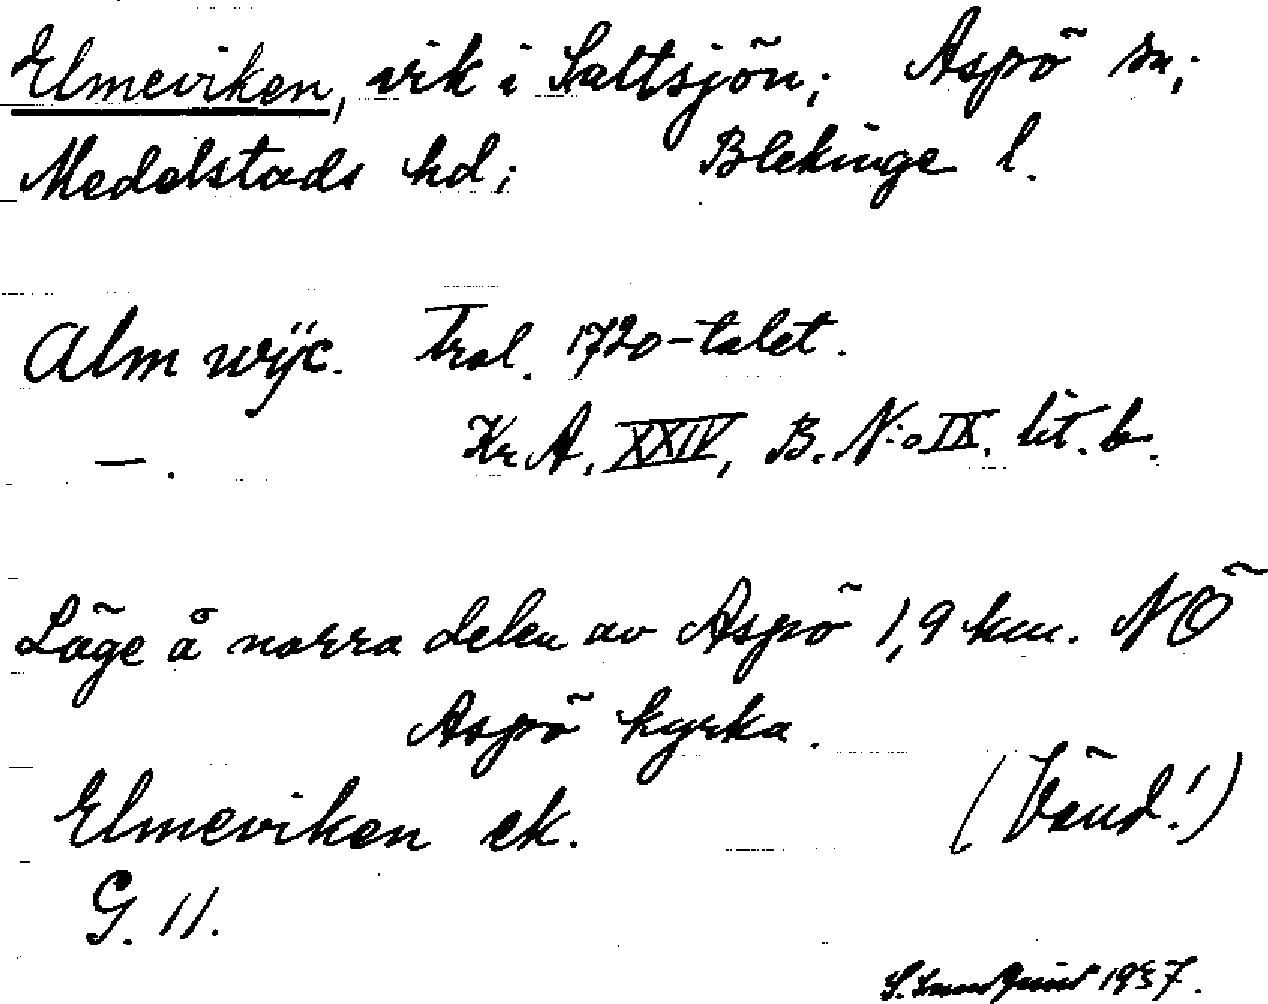 Elmeviken, vik i Saltsjön; Aspö sn;
Medelstads hd; Blekinge l.
Alm wÿc. Tral. 1720-talet.
—. Kr A. XXIV, B. N:o IX. lit. b.
Läge å norra delen av Aspö 1,9 km. NÖ
Aspö kyrka.
Elmeviken ek. (Vänd!)
G. 11.
1937.